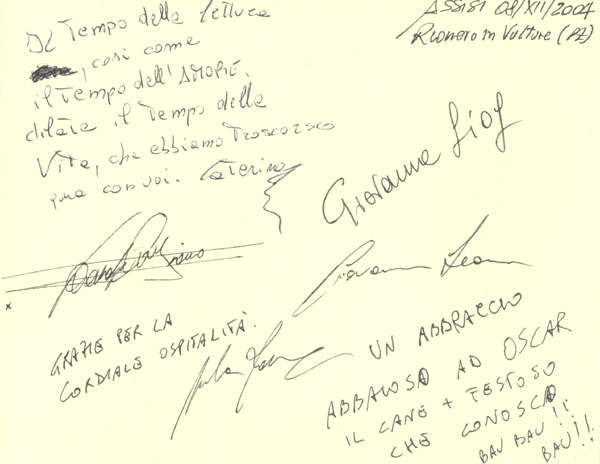 Il Tempo della lettura
, così come
il tempo dell'AMORE,
dilata il Tempo della
Vita, che abbiamo Trascorso
qua con voi. Caterina
ASSISI 08/XII/2004
Rionero in Vulture (PZ)
Giovanna
Giovanni
GRAZIE PER LA
CORDIALE OSPITALITÀ.
UN ABBRACCIO
ABBAIOSO AD OSCAR
IL CANE + TESTOSO
CHE CONOSCA
BAU BAU!!
BAU!!